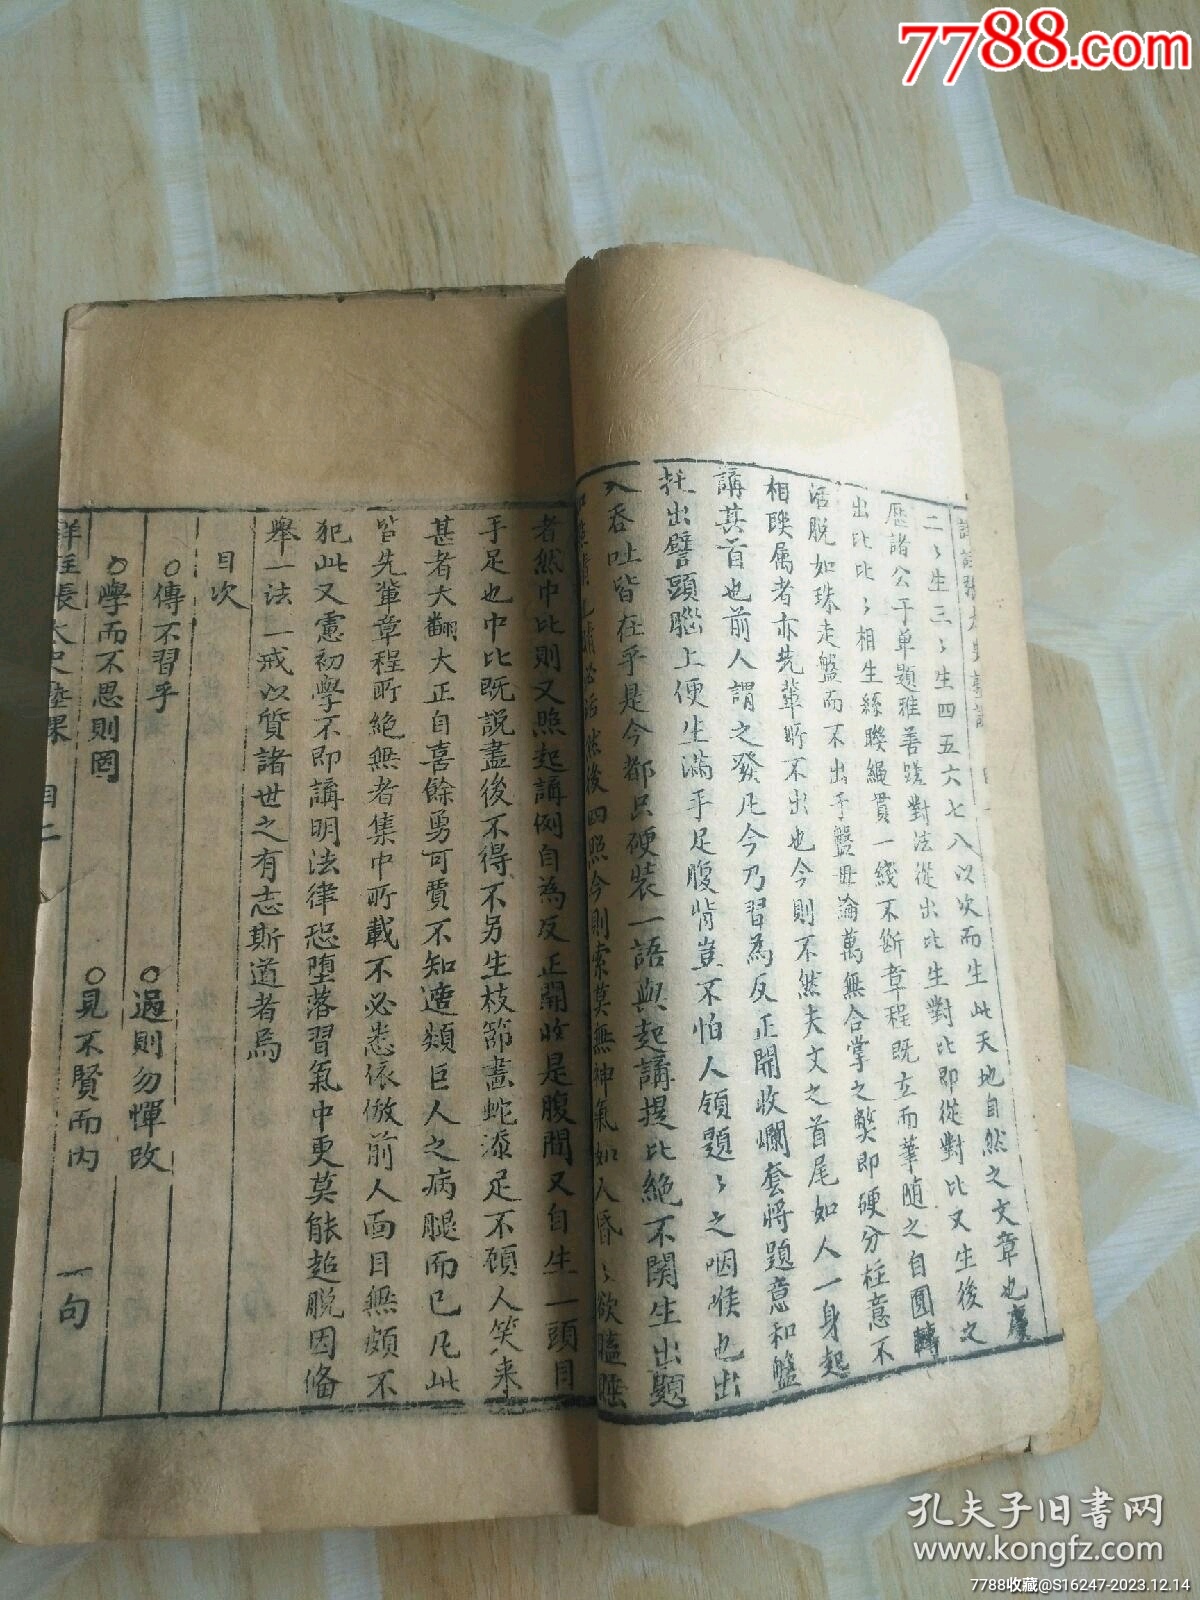 7788.com
二〻生三〻生四五六七八以次而生此天地自然之文章也慶
歷諸公于单題雅善蹉對法從出比生對比即從對比又生後之
出比比〻相生絲聨繩貫一綫不斷章程既立而筆随之自圓轉
活脱如珠走盤而不出乎盤毋論萬無合掌之獘即硬分柱意不
相聨属者亦先輩所不出也今則不然夫文之首尾如人一身起
講其首也前人謂之發凡今乃習為反正開收爛套将題意和盤
托出譬頭腦上便生滿手足腹背豈不怕人領題〻之咽喉也出
入吞吐皆在乎是今都只硬装一語與起講提比絶不関生出題
必活然後四照今則索莫無神氣如人昏〻欲瞌睡
者然中比則又照起講例自為反正開收是腹間又自生一頭目
手足也中比既説盡後不得不另生枝節畫蛇添足不顧人笑来
甚者大翻大正自喜餘勇可賈不知遮類巨人之病腿而已凡此
皆先輩章程所絶無者集中所載不必悉依倣前人面目無頗不
犯此又憲初學不即講明法律恐堕落習氣中更莫能超脱因偹
舉一法一戒以質諸世之有志斯道者焉
目次
傳不習乎
過則勿憚改
學而不思則罔
見不賢而内 一句
張太史塾課 目二
孔夫子旧书网
www.kongfz.com
7788收藏@S16247-2023.12.14